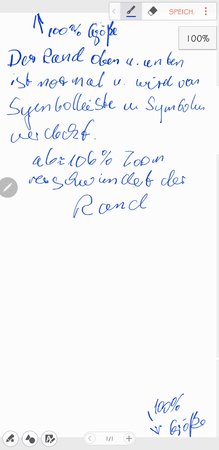 SPEICH.
100%
↑ 100% Größe
Der Rand oben u. unten
ist normal u. wird von
Symbolleiste u. Symbolen
verdeckt.
ab ≈ 106% Zoom
verschwindet der
Rand
100%
↓ Größe
1/1